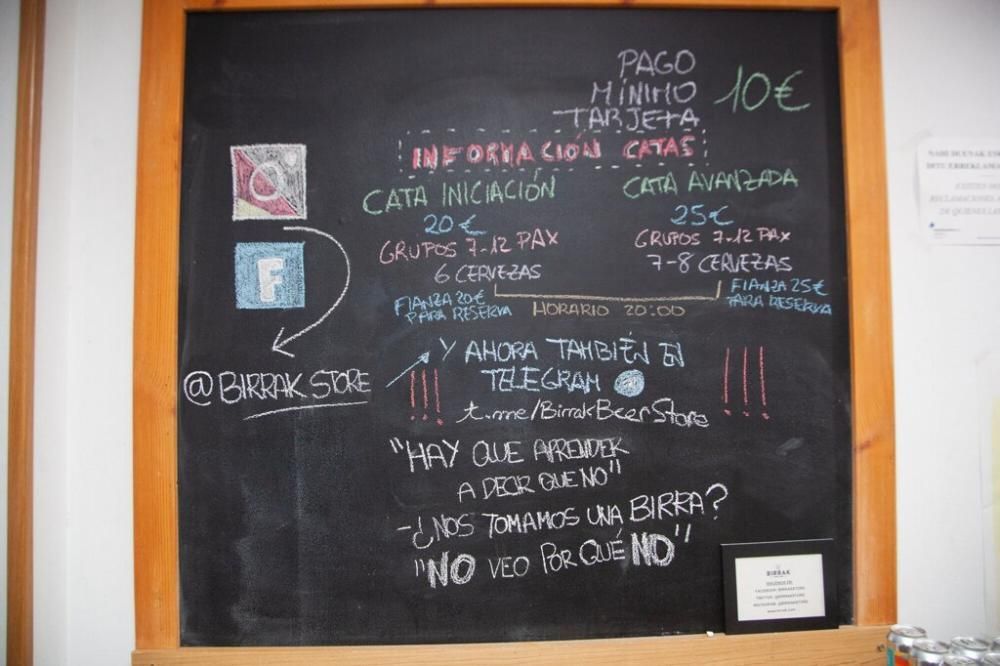 PAGO
MÍNIMO
TARJETA
10€
INFORMACIÓN CATAS
CATA INICIACIÓN
20€
GRUPOS 7-12 PAX
6 CERVEZAS
FIANZA 20€
PARA RESERVA
CATA AVANZADA
25€
GRUPOS 7-12 PAX
7-8 CERVEZAS
FIANZA 25€
PARA RESERVA
HORARIO 20:00
F
@BIRRAK STORE
!!! Y AHORA TAMBIÉN EN !!!
TELEGRAM
t.me/BirrakBeerStore
"HAY QUE APRENDER
A DECIR QUE NO"
-¿NOS TOMAMOS UNA BIRRA?
"NO VEO POR QUÉ NO"
BIRRAK